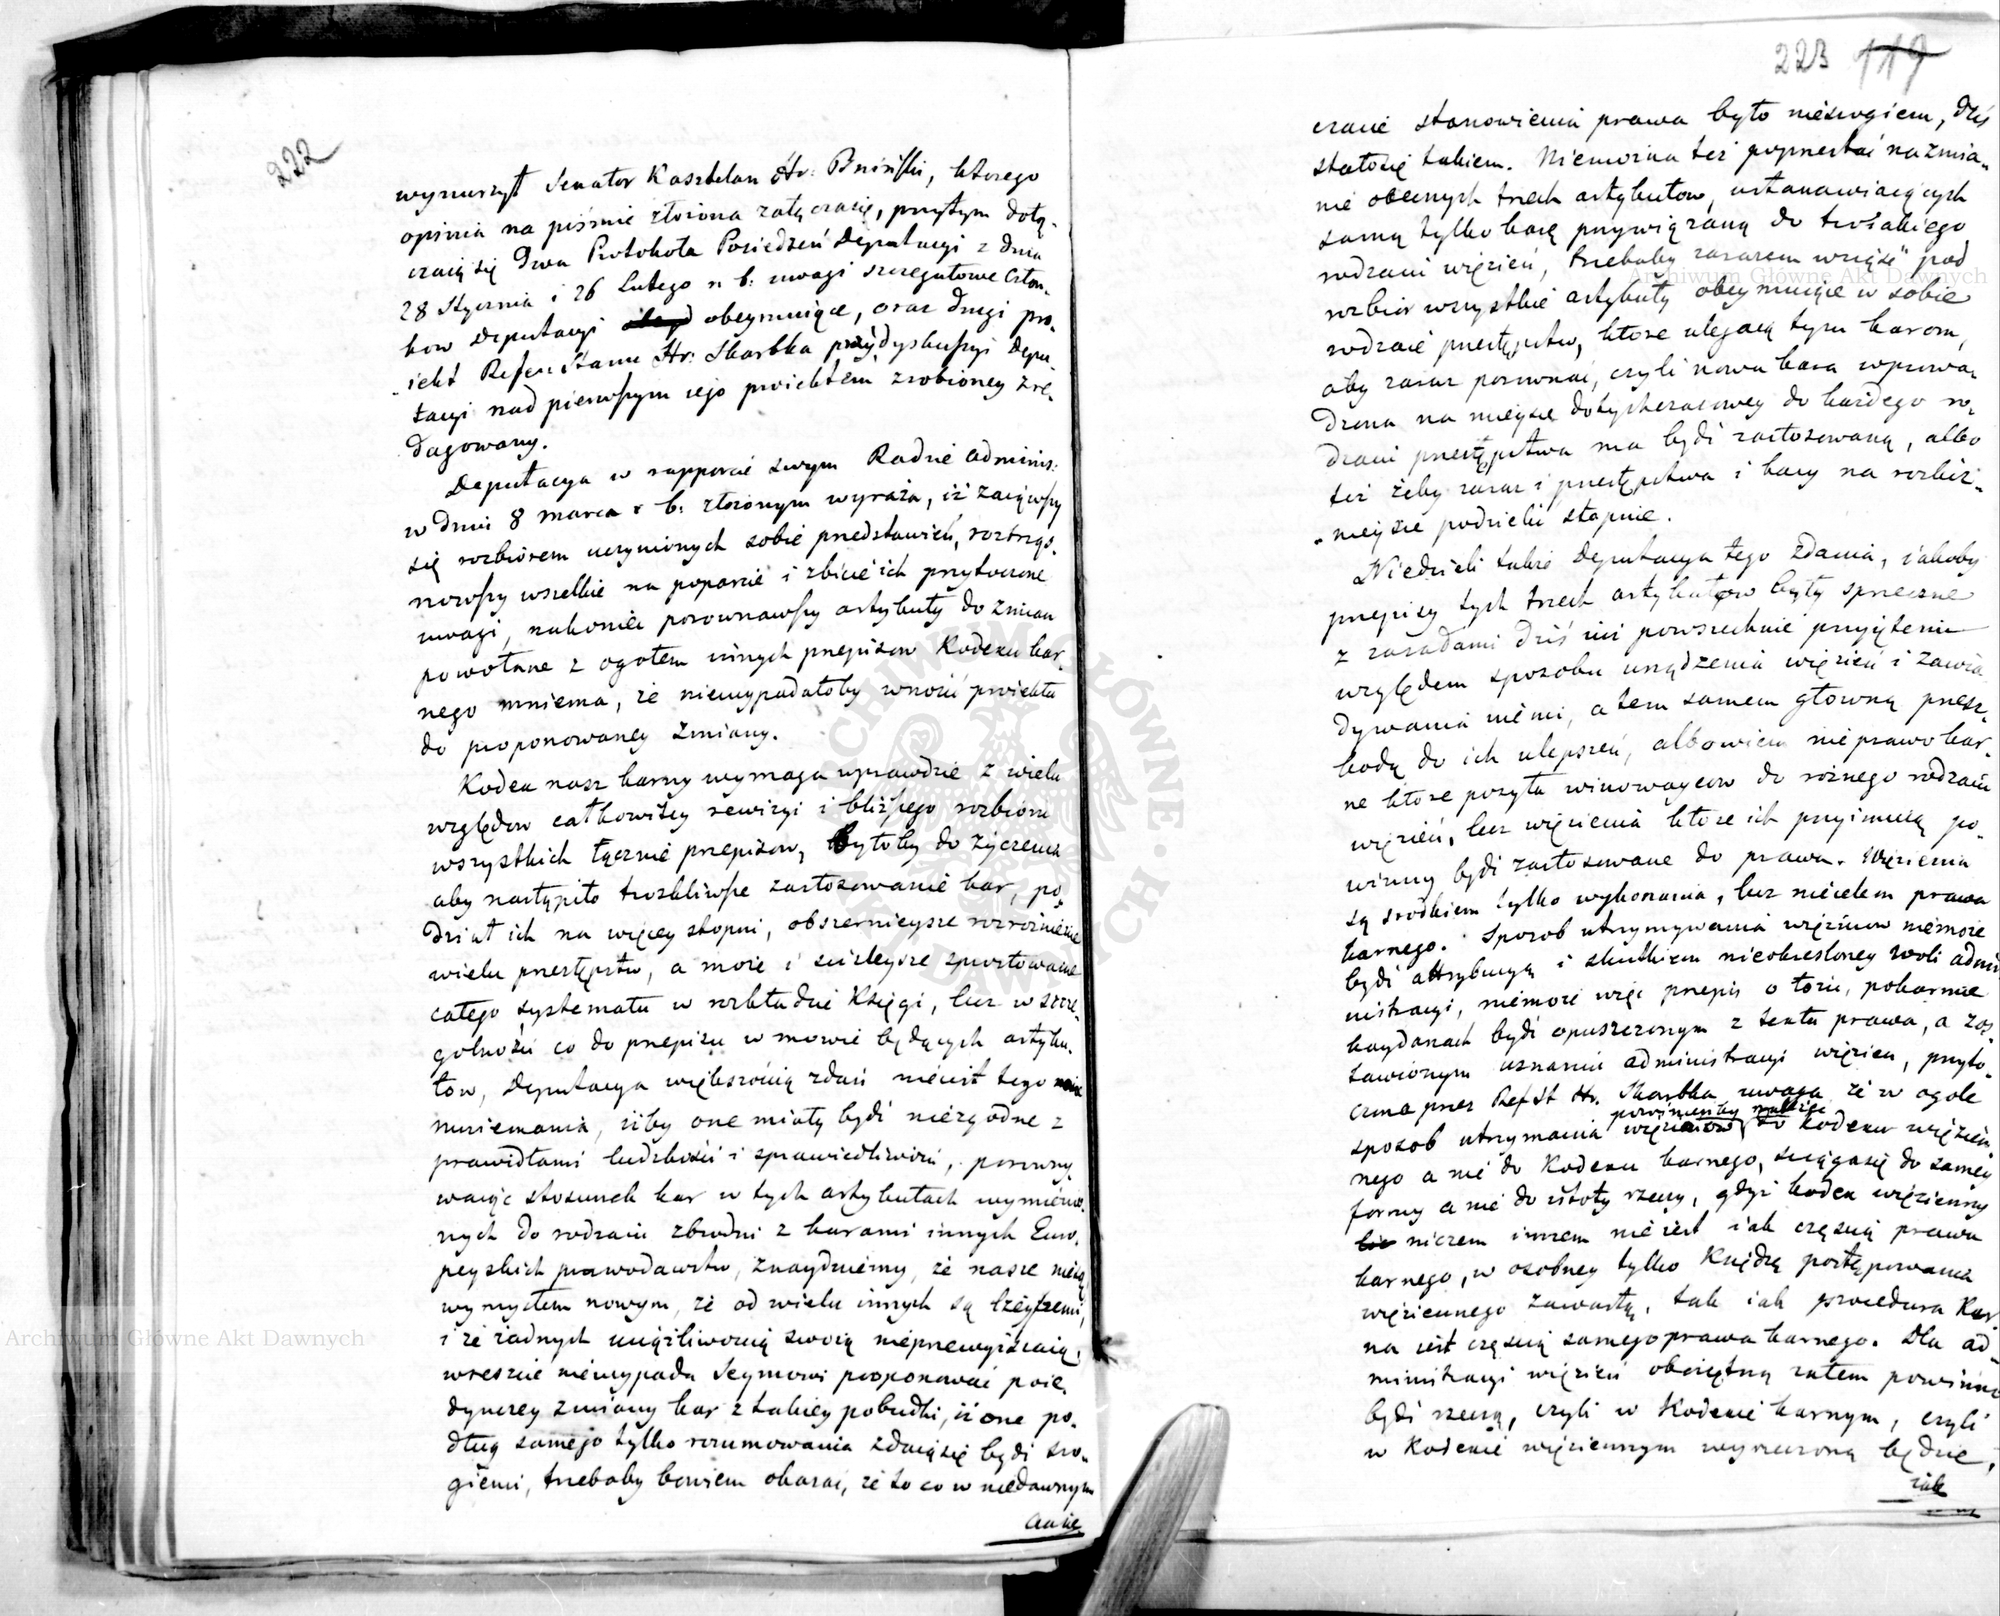 222
wynurzył Senator Kasztelan Hr: Bniński, którego
opinia na piśmie złożona załącza się, przytym dołą-
czaią się Dwa Protokoła Posiedzeń Deputacyi z dnia
28 Stycznia i 26 Lutego r. b: uwagi szczegułowe Człon-
kow Deputacyi obeymuiące, oraz drugi pro-
iekt Refer: Stanu Hr: Skarbka przy dyskussyi Depu-
tacyi nad pierwszym iego proiektem zrobioney zre-
dagowany.
Deputacya w rapporcie swym Radzie Adminis:
w dniu 8 marca r. b: złożonym wyraża, iż zaiąwszy
się rozbiorem uczynionych sobie przedstawień, roztrzą-
snowszy wszelkie na poparcie i zbicie ich przytoczone
uwagi, nakoniec porownawszy artykuły do zmian
powołane z ogołem innych przepisow Kodexu kar-
nego mniema, że niewypadałoby wnosić proiektu
do proponowaney zmiany.
Kodex nasz karny wymaga wprawdzie z wielu
względow całkowitey rewizyi i bliższego rozbioru
wszystkich łącznie przepisow, byłoby do życzenia
aby nastąpiło troskliwsze zastosowanie kar, po-
dział ich na więcey stopni, obszernieysze rozrożnienie
wielu przestępstw, a może i ściśleysze sprostowanie
całego systematu w rozkładzie Księgi, lecz w szcze-
gólności co do przepisu w mowie będących artyku-
łow, Deputacya większością zdań nieiest tego
mniemania, iżby one miały bydź niezgodne z
prawidłami ludzkości i sprawiedliwości, porowny-
waiąc stosunek kar w tych artykułach wymienio-
nych do rodzaiu zbrodni z karami innych Euro-
peyskich prawodawstw, znaydziemy, że nasze nie są
wymysłem nowym, że od wielu innych są lżeyszemi,
i że żadnych uciążliwością swoią nieprzewyższaią,
wreszcie niewypada Seymowi proponować poie-
dynczey zmiany kar z takiey pobudki, iż one po-
dług samego tylko rozumowania zdaią się bydź sro-
giemi, trzebaby bowiem okazać, że to co w niedawnym
czasie
223 119
czasie stanowienia prawa było niesrogiem, dziś
stało się takiem. Niemożna też poprzestać na zmia-
nie obecnych trzech artykułow, ustanawiaiących
samą tylko karę przywiązaną do troiakiego
rodzaiu więzień, trzebaby zarazem wziąść pod
rozbior wszystkie artykuły obeymuiące w sobie
rodzaie przestępstw, ktore ulegaią tym karom,
aby zaraz porownać, czyli nowa kara wprowa-
dzona na mieysce dotychczasowey do każdego ro-
dzaiu przestępstwa ma bydź zastosowaną, albo
też żeby zaraz i przestępstwa i kary na rozlicz-
nieysze podzielić stopnie.
Niedzieli także Deputacya tego zdania, iakoby
przepisy tych trzech artykułow były sprzeczne
z zasadami dziś iuż powszechnie przyiętemi
względem sposobu urządzenia więzień i zawia-
dywania niemi, a tem samem główną przesz-
kodą do ich ulepszeń, albowiem nie prawo kar-
ne ktore posyła winowaycow do rożnego rodzaiu
więzień, lecz więzienia ktore ich przyimuią po-
winny bydź zastosowane do prawa. Więzienia
są środkiem tylko wykonania, lecz nie celem prawa
karnego. Sposob utrzymywania więźniow niemoże
bydź attrybucyą i skutkiem nieokreśloney woli admi-
nistracyi, niemoże więc przepis o łożu, pokarmie
kaydanach bydź opuszczonym z textu prawa, a zos-
tawionym uznaniu administracyi więzień, przyto-
czona przez Ref St Hr. Skarbka uwaga że w ogole
sposob utrzymania więźniow powinienby należeć do Kodexu więzien-
nego a nie do Kodexu karnego, ściąga się do samey
formy a nie do istoty rzeczy, gdyż kodex więzienny
niczem innem nie iest iak częścią prawa
karnego, w osobney tylko Księdze postępowania
więziennego zawartą, tak iak procedura Kar-
na iest częścią samego prawa karnego. Dla ad-
ministracyi więzień oboiętną zatem powinno
bydź rzeczą, czyli w Kodexie karnym, czyli
w Kodexie więziennym wyrzeczoną będzie,
iak
Archiwum Główne Akt Dawnych
Archiwum Główne Akt Dawnych
ARCHIWUM GŁÓWNE AKT DAWNYCH